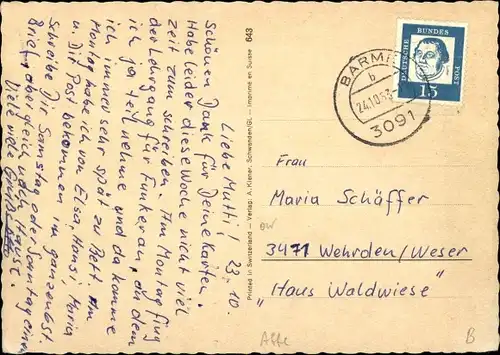 Liebe Mutti! 23.10.
Schönen Dank für Deine Karten.
Habe leider diese Woche nicht viel
zeit zum schreiben. Am Montag fing
der Lehrgang für Funker an, an dem
ich ja teil nehme und da komme
ich immer sehr spät zu Bett. Am
Montag habe ich von Elsa, Hansi, Maria
u. Dir Post bekommen.
Schreibe Dir Samstag oder Sonntag einen
Brief, aber gleich nach Hause.
Viele viele Grüße
643
Printed in Switzerland – Verlag: A. Kiener, Schwanden/Gl. – Imprimé en Suisse
DEUTSCHE BUNDESPOST
15
BARME
b
24.10.63
3091
Frau
Maria Schäffer
3471 Wehrden/Weser
"Haus Waldwiese"
B